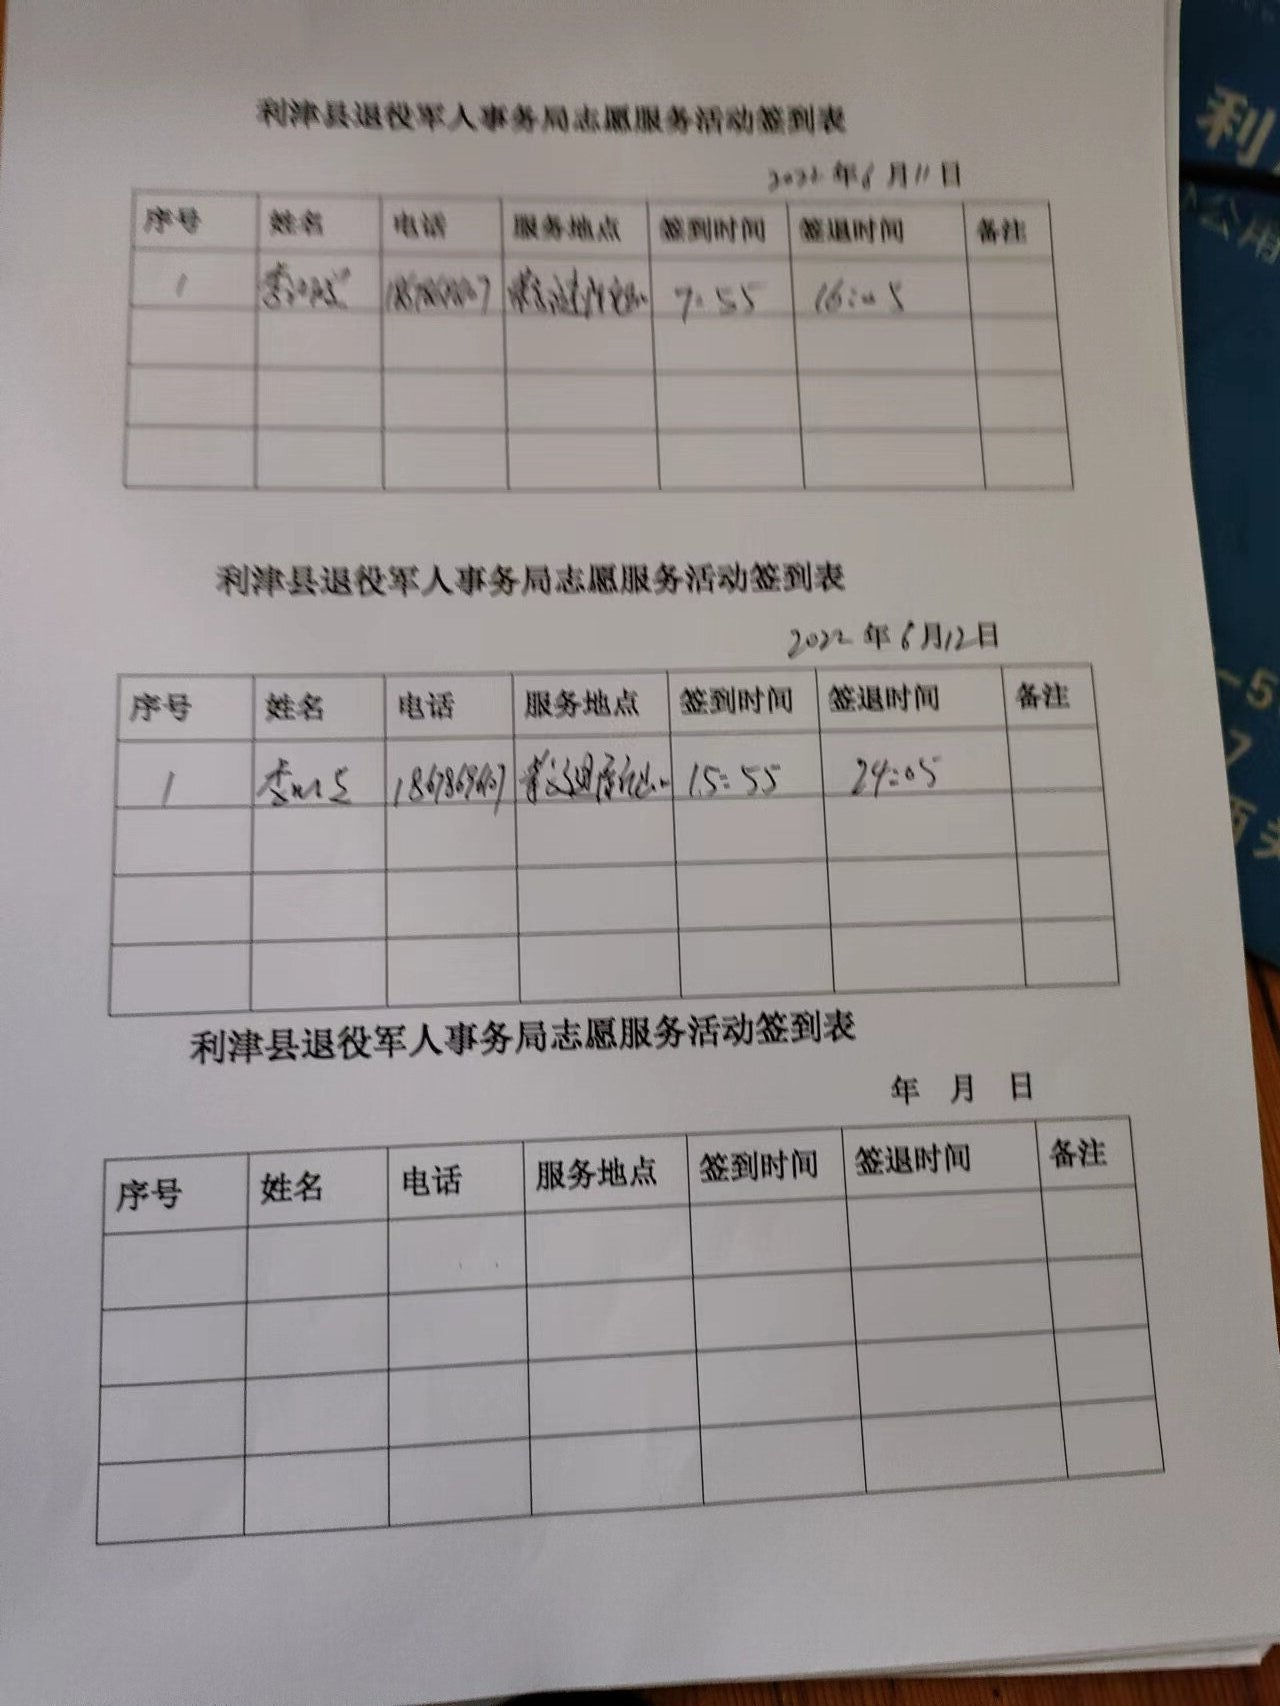 利津县退役军人事务局志愿服务活动签到表
2022年6月11日
序号 姓名 电话 服务地点 签到时间 签退时间 备注
1 7:55 16:05
利津县退役军人事务局志愿服务活动签到表
2022年6月12日
序号 姓名 电话 服务地点 签到时间 签退时间 备注
1 15:55 24:05
利津县退役军人事务局志愿服务活动签到表
年 月 日
序号 姓名 电话 服务地点 签到时间 签退时间 备注
利
公用